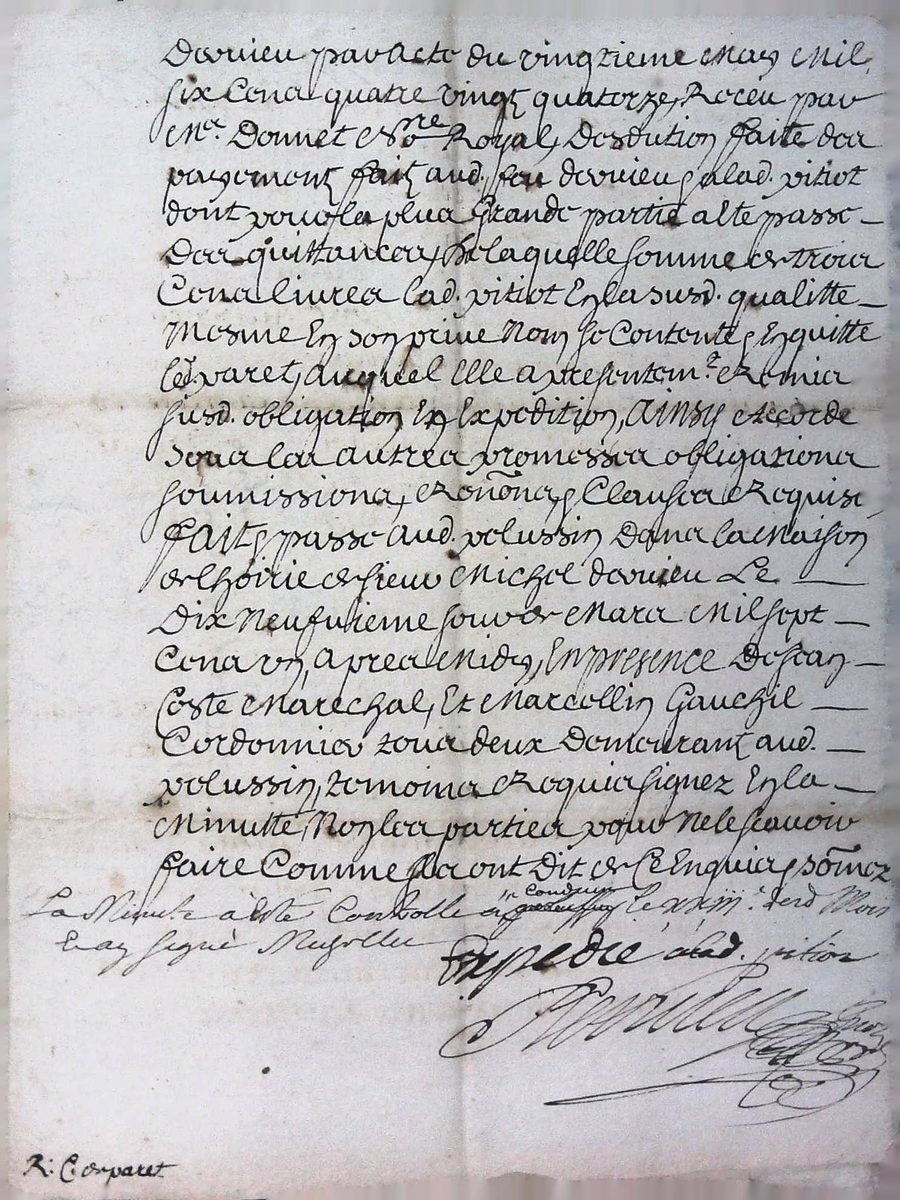 dervieu par acte du vingtieme may mil
six cens quatre vingt quatorze, Receu par
me. Donnet no.re Royal, desdution faite des
payement fait aud. feu dervieu, e alad. pitiot
dont pour la plus grande partie a este passe
des quittances, de laquelle somme de trois
cens livres lad. pitiot en la susd. qualitte
mesme en son prive nom se contente, e en quitte
led. paret, auquel elle a presentem.t Remis
susd. obligation en expedition, ainsy accorde
sous les autres promesses obligations
soumissions, Renōnons, e clauses Requise
fait, e passe aud. pelussin dans la maison
de lhoirie de sieur michel dervieu le
dix neufvieme jour de mars mil sept
cens un, apres midy, en presence de jean
coste marechal, et marcellin gauchil
cordonnier tous deux demeurant aud.
pelussin, temoins Requis signez en la
minutte, non les parties pour ne le scavoir
faire comme elles ont dit de ce enquis, e sōmez
La minute a esté controlle a condrieu le xxiii.e dud mois
Expedié alad. pitiot
R: C. de paret